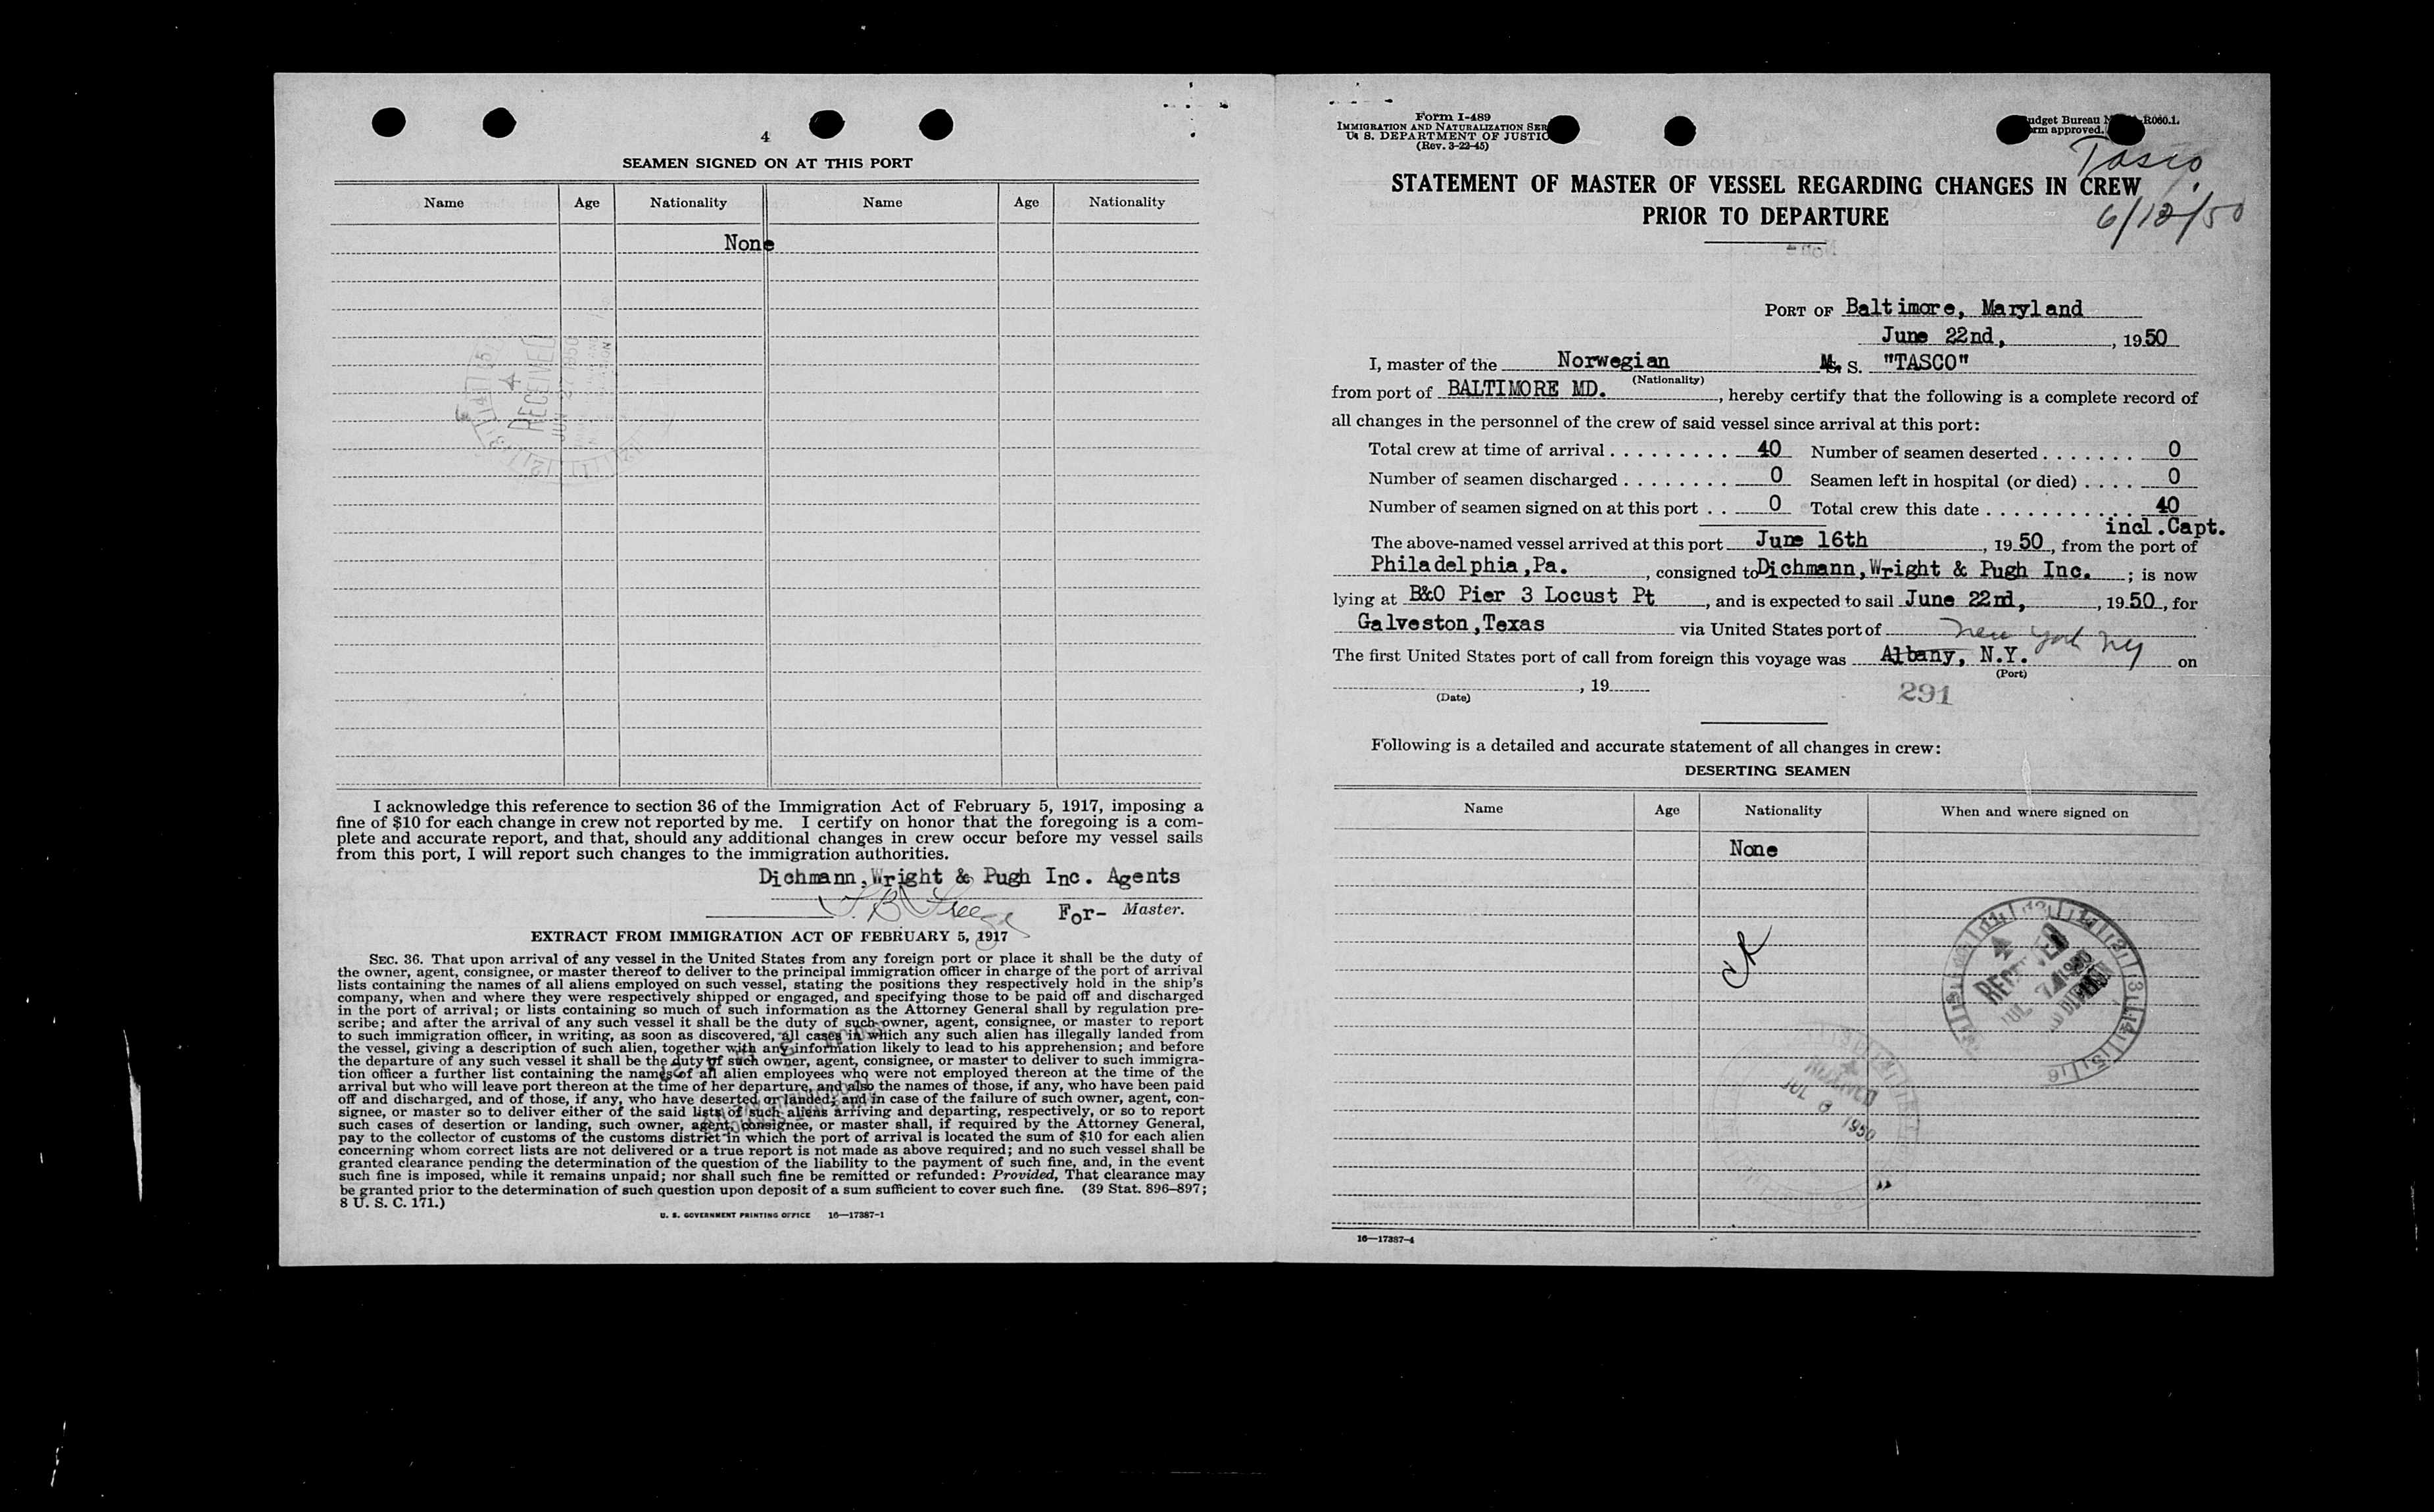 4
SEAMEN SIGNED ON AT THIS PORT
Name Age Nationality Name Age Nationality
None
RECEIVED
I acknowledge this reference to section 36 of the Immigration Act of February 5, 1917, imposing a
fine of $10 for each change in crew not reported by me. I certify on honor that the foregoing is a com-
plete and accurate report, and that, should any additional changes in crew occur before my vessel sails
from this port, I will report such changes to the immigration authorities.
Dichmann,Wright & Pugh Inc. Agents
For- Master.
EXTRACT FROM IMMIGRATION ACT OF FEBRUARY 5, 1917
SEC. 36. That upon arrival of any vessel in the United States from any foreign port or place it shall be the duty of
the owner, agent, consignee, or master thereof to deliver to the principal immigration officer in charge of the port of arrival
lists containing the names of all aliens employed on such vessel, stating the positions they respectively hold in the ship's
company, when and where they were respectively shipped or engaged, and specifying those to be paid off and discharged
in the port of arrival; or lists containing so much of such information as the Attorney General shall by regulation pre-
scribe; and after the arrival of any such vessel it shall be the duty of such owner, agent, consignee, or master to report
to such immigration officer, in writing, as soon as discovered, all cases in which any such alien has illegally landed from
the vessel, giving a description of such alien, together with any information likely to lead to his apprehension; and before
the departure of any such vessel it shall be the duty of such owner, agent, consignee, or master to deliver to such immigra-
tion officer a further list containing the names of all alien employees who were not employed thereon at the time of the
arrival but who will leave port thereon at the time of her departure, and also the names of those, if any, who have been paid
off and discharged, and of those, if any, who have deserted or landed; and in case of the failure of such owner, agent, con-
signee, or master so to deliver either of the said lists of such aliens arriving and departing, respectively, or so to report
such cases of desertion or landing, such owner, agent, consignee, or master shall, if required by the Attorney General,
pay to the collector of customs of the customs district in which the port of arrival is located the sum of $10 for each alien
concerning whom correct lists are not delivered or a true report is not made as above required; and no such vessel shall be
granted clearance pending the determination of the question of the liability to the payment of such fine, and, in the event
such fine is imposed, while it remains unpaid; nor shall such fine be remitted or refunded: Provided, That clearance may
be granted prior to the determination of such question upon deposit of a sum sufficient to cover such fine. (39 Stat. 896–897;
8 U. S. C. 171.)
U. S. GOVERNMENT PRINTING OFFICE 16—17387-1
Form I-489
IMMIGRATION AND NATURALIZATION SER
U. S. DEPARTMENT OF JUSTIC
(Rev. 3-22-45)
udget Bureau N R060.1.
rm approved.
Tasco
STATEMENT OF MASTER OF VESSEL REGARDING CHANGES IN CREW
PRIOR TO DEPARTURE
6/12/50
PORT OF Baltimore, Maryland
June 22nd, , 1950
I, master of the Norwegian M. S. "TASCO"
(Nationality)
from port of BALTIMORE MD. , hereby certify that the following is a complete record of
all changes in the personnel of the crew of said vessel since arrival at this port:
Total crew at time of arrival . . . . . . . . . 40 Number of seamen deserted . . . . . . . 0
Number of seamen discharged . . . . . . . . 0 Seamen left in hospital (or died) . . . . 0
Number of seamen signed on at this port . . 0 Total crew this date . . . . . . . . . . . 40
incl.Capt.
The above-named vessel arrived at this port June 16th , 19 50 , from the port of
Philadelphia,Pa. , consigned to Dichmann,Wright & Pugh Inc. ; is now
lying at B&O Pier 3 Locust Pt , and is expected to sail June 22nd, , 19 50 , for
Galveston,Texas via United States port of
New York NY
The first United States port of call from foreign this voyage was Albany, N.Y. on
(Port)
, 19
(Date)
291
Following is a detailed and accurate statement of all changes in crew:
DESERTING SEAMEN
Name Age Nationality When and where signed on
None
JUL 6 1950
16—17387-4